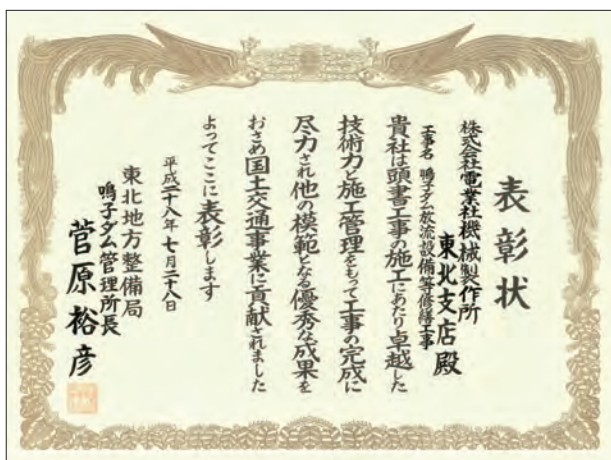 表彰状
株式会社電業社機械製作所
東北支店殿
工事名 鳴子ダム放流設備等修繕工事
貴社は頭書工事の施工にあたり卓越した
技術力と施工管理をもって工事の完成に
尽力され他の模範となる優秀な成果を
おさめ国土交通事業に貢献されました
よってここに表彰します
平成二十八年七月二十八日
東北地方整備局
鳴子ダム管理所長
菅原裕彦